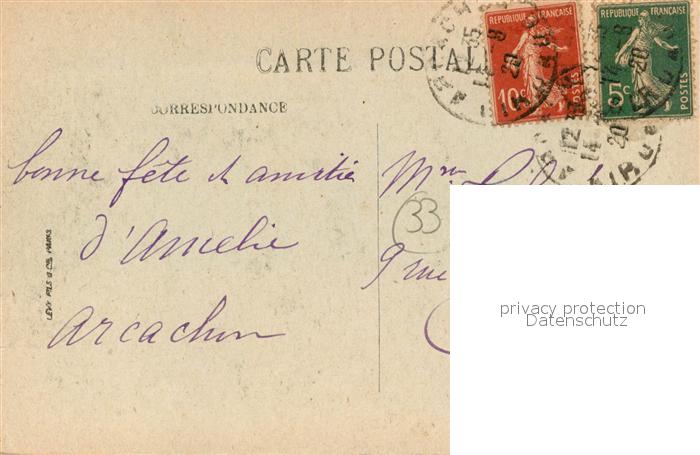 CARTE POSTALE
CORRESPONDANCE
REPUBLIQUE FRANÇAISE
10c
POSTES
REPUBLIQUE FRANÇAISE
5c
POSTES
bonne fête et amitié
d'Amelie
Arcachon
Mme
33
9 rue
LEVY FILS & Cie PARIS
privacy protection
Datenschutz